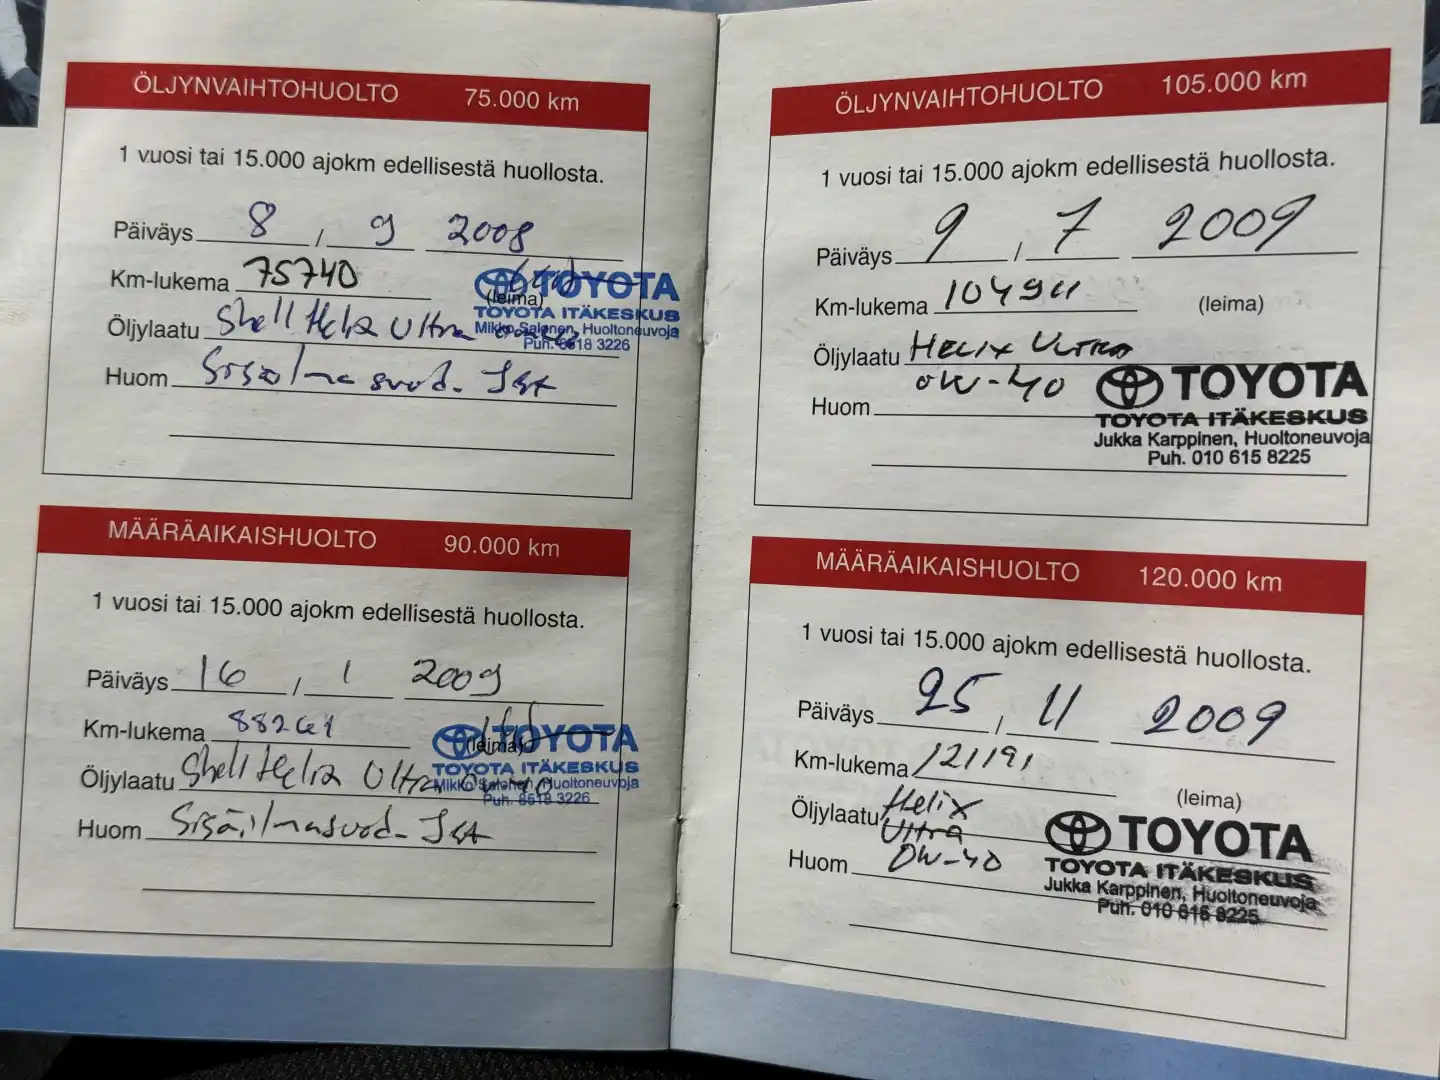 ÖLJYNVAIHTOHUOLTO 75.000 km
1 vuosi tai 15.000 ajokm edellisestä huollosta.
Päiväys 8 / 9 2008
Km-lukema 75740
(leima)
TOYOTA
TOYOTA ITÄKESKUS
Mikko Salonen, Huoltoneuvoja
Puh. 8518 3226
Öljylaatu Shell Helix Ultra
Huom Sisäilmasuod.
MÄÄRÄAIKAISHUOLTO 90.000 km
1 vuosi tai 15.000 ajokm edellisestä huollosta.
Päiväys 16 / 1 2009
Km-lukema 88261
(leima)
TOYOTA
TOYOTA ITÄKESKUS
Mikko Salonen, Huoltoneuvoja
Puh. 8518 3226
Öljylaatu Shell Helix Ultra 0W-40
Huom Sisäilmasuod.
ÖLJYNVAIHTOHUOLTO 105.000 km
1 vuosi tai 15.000 ajokm edellisestä huollosta.
Päiväys 9 / 7 2009
Km-lukema 104911
(leima)
Öljylaatu HELIX ULTRA
0W-40
Huom
TOYOTA
TOYOTA ITÄKESKUS
Jukka Karppinen, Huoltoneuvoja
Puh. 010 615 8225
MÄÄRÄAIKAISHUOLTO 120.000 km
1 vuosi tai 15.000 ajokm edellisestä huollosta.
Päiväys 25 / 11 2009
Km-lukema 121191
(leima)
Öljylaatu Helix
Ultra
Huom 0W-40
TOYOTA
TOYOTA ITÄKESKUS
Jukka Karppinen, Huoltoneuvoja
Puh. 010 615 8225